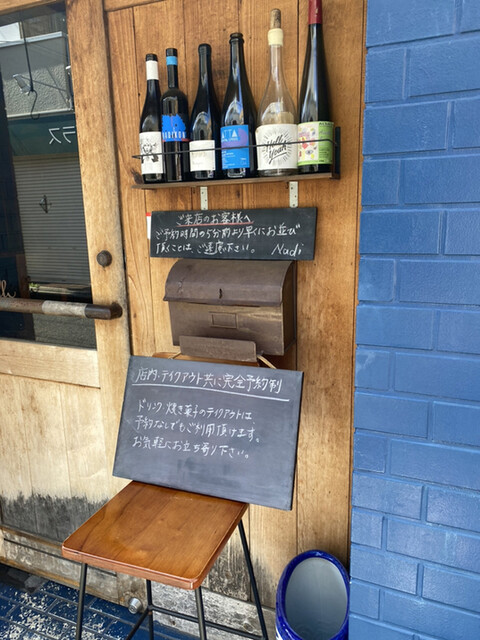 ラス
ご来店のお客様へ
ご予約時間の5分前より早くにお並び
頂くことは、ご遠慮下さい。 Nadi
店内・テイクアウト共に完全予約制
ドリンク・焼き菓子のテイクアウトは
予約なしでもご利用頂けます。
お気軽にお立ち寄り下さい。